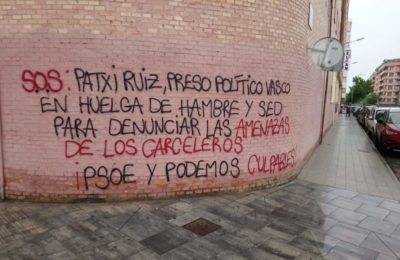 SOS: PATXI RUIZ, PRESO POLÍTICO VASCO
EN HUELGA DE HAMBRE Y SED
PARA DENUNCIAR LAS AMENAZAS
DE LOS CARCELEROS
¡PSOE Y PODEMOS CULPABLES!